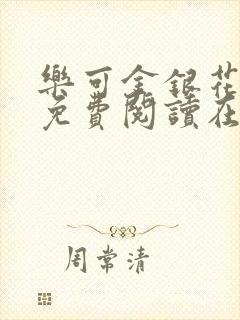 樂可金銀花
免費閱讀在
周常清